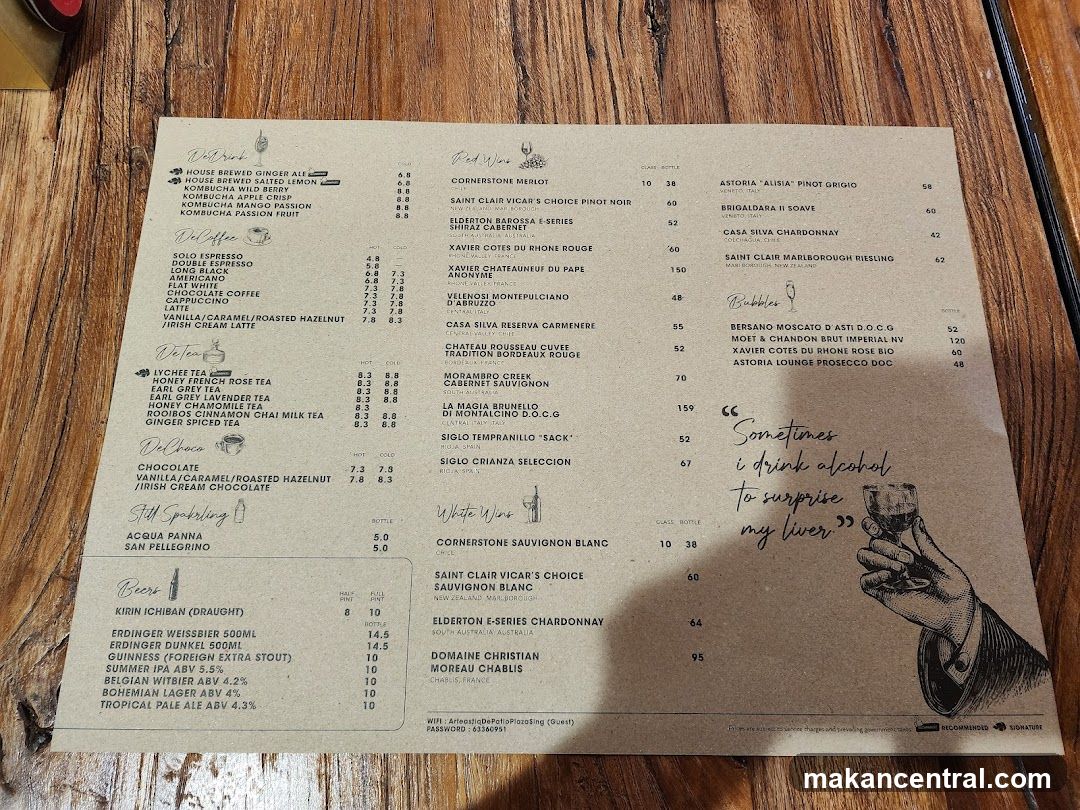 DeDrink
COLD
HOUSE BREWED GINGER ALE 6.8
HOUSE BREWED SALTED LEMON 6.8
KOMBUCHA WILD BERRY 8.8
KOMBUCHA APPLE CRISP 8.8
KOMBUCHA MANGO PASSION 8.8
KOMBUCHA PASSION FRUIT 8.8
DeCoffee
HOT COLD
SOLO ESPRESSO 4.8
DOUBLE ESPRESSO 5.8
LONG BLACK 6.8 7.3
AMERICANO 6.8 7.3
FLAT WHITE 7.3 7.8
CHOCOLATE COFFEE 7.3 7.8
CAPPUCCINO 7.3 7.8
LATTE 7.3 7.8
VANILLA/CARAMEL/ROASTED HAZELNUT 7.8 8.3
/IRISH CREAM LATTE
DeTea
HOT COLD
LYCHEE TEA 8.3 8.8
HONEY FRENCH ROSE TEA 8.3 8.8
EARL GREY TEA 8.3 8.8
EARL GREY LAVENDER TEA 8.3 8.8
HONEY CHAMOMILE TEA 8.3
ROOIBOS CINNAMON CHAI MILK TEA 8.3 8.8
GINGER SPICED TEA 8.3 8.8
DeChoco
HOT COLD
CHOCOLATE 7.3 7.8
VANILLA/CARAMEL/ROASTED HAZELNUT 7.8 8.3
/IRISH CREAM CHOCOLATE
Still Spakrling
BOTTLE
ACQUA PANNA 5.0
SAN PELLEGRINO 5.0
Beers
HALF PINT FULL PINT
KIRIN ICHIBAN (DRAUGHT) 8 10
BOTTLE
ERDINGER WEISSBIER 500ML 14.5
ERDINGER DUNKEL 500ML 14.5
GUINNESS (FOREIGN EXTRA STOUT) 10
SUMMER IPA ABV 5.5% 10
BELGIAN WITBIER ABV 4.2% 10
BOHEMIAN LAGER ABV 4% 10
TROPICAL PALE ALE ABV 4.3% 10
Red Wins
GLASS BOTTLE
CORNERSTONE MERLOT 10 38
CHILE
SAINT CLAIR VICAR'S CHOICE PINOT NOIR 60
NEW ZEALAND, MARLBOROUGH
ELDERTON BAROSSA E-SERIES 52
SHIRAZ CABERNET
SOUTH AUSTRALIA, AUSTRALIA
XAVIER COTES DU RHONE ROUGE 60
RHONE VALLEY, FRANCE
XAVIER CHATEAUNEUF DU PAPE 150
ANONYME
RHONE VALLEY, FRANCE
VELENOSI MONTEPULCIANO 48
D'ABRUZZO
CENTRAL ITALY
CASA SILVA RESERVA CARMENERE 55
CENTRAL VALLEY, CHILE
CHATEAU ROUSSEAU CUVEE 52
TRADITION BORDEAUX ROUGE
BORDEAUX, FRANCE
MORAMBRO CREEK 70
CABERNET SAUVIGNON
SOUTH AUSTRALIA
LA MAGIA BRUNELLO 159
DI MONTALCINO D.O.C.G
CENTRAL ITALY, ITALY
SIGLO TEMPRANILLO "SACK" 52
RIOJA, SPAIN
SIGLO CRIANZA SELECCION 67
RIOJA, SPAIN
White Wins
GLASS BOTTLE
CORNERSTONE SAUVIGNON BLANC 10 38
CHILE
SAINT CLAIR VICAR'S CHOICE 60
SAUVIGNON BLANC
NEW ZEALAND, MARLBOROUGH
ELDERTON E-SERIES CHARDONNAY 64
SOUTH AUSTRALIA, AUSTRALIA
DOMAINE CHRISTIAN 95
MOREAU CHABLIS
CHABLIS, FRANCE
WIFI : ArteastiqDePatioPlazaSing (Guest)
PASSWORD : 63360951
ASTORIA "ALISIA" PINOT GRIGIO 58
VENETO, ITALY
BRIGALDARA II SOAVE 60
VENETO, ITALY
CASA SILVA CHARDONNAY 42
COLCHAGUA, CHILE
SAINT CLAIR MARLBOROUGH RIESLING 62
MARLBOROUGH, NEW ZEALAND
Bubbles
BOTTLE
BERSANO MOSCATO D ASTI D.O.C.G 52
MOET & CHANDON BRUT IMPERIAL NV 120
XAVIER COTES DU RHONE ROSE BIO 60
ASTORIA LOUNGE PROSECCO DOC 48
“Sometimes
i drink alcohol
to surprise
my liver.”
Prices are subject to service charges and prevailing government taxes
RECOMMENDED SIGNATURE
makancentral.com